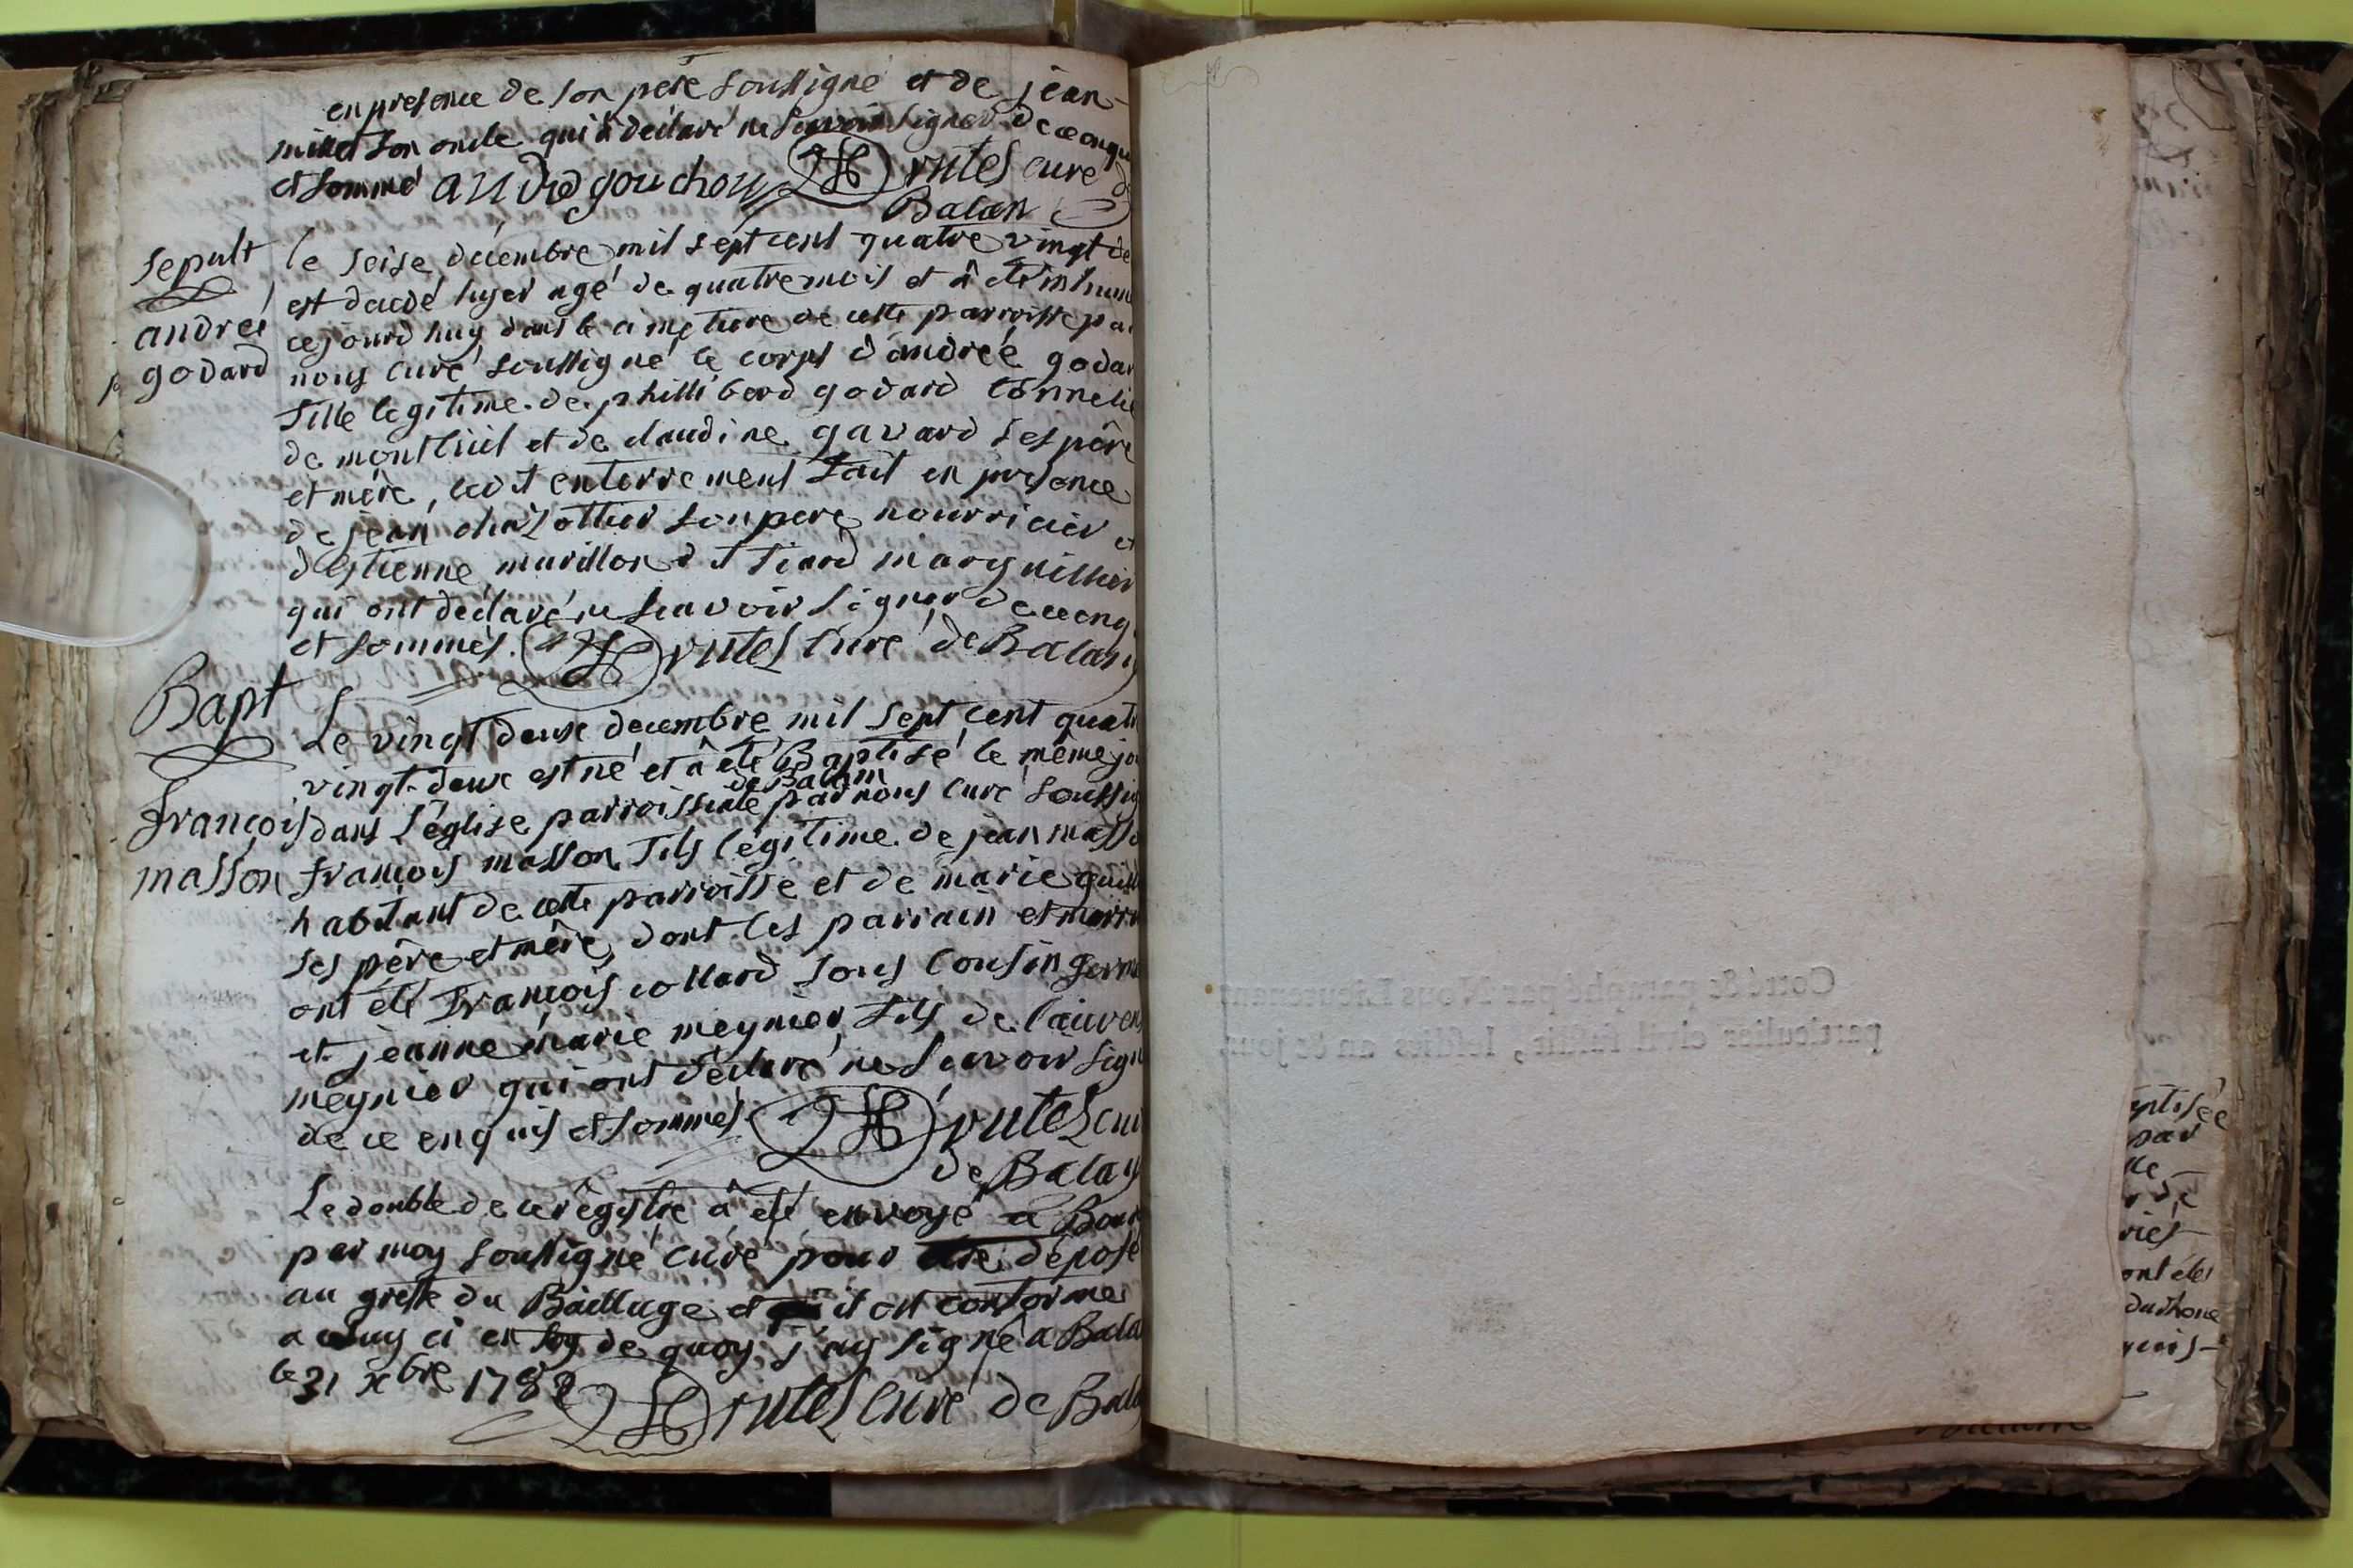 en presence de son pere soussigné et de jean
millet son oncle qui à declaré ne scavoir signer de ce enqu
et sommé andre gouchon Drutel curé d
Balan
Sepult
andrée
godard
le seise decembre mil sept cent quatre vingt de
est decedé hyer agé de quatre mois et à eté inhum
cejourd'huy dans le cimetiere de cette parroisse pa
nous curé soussigné le corps d'andrée godar
fille legitime de philliberd godard tonnelie
de montluel et de claudine gavard ses père
et mère, ledit enterrement fait en presence
de jean chazottier son pere nourricier et
d'estienne murillon dit fiard marguillier
qui ont déclaré ne scavoir signer de ce enq
et sommés. Drutel curé de Balan
Bapt
françois
masson
Le vingt deux decembre mil sept cent quatr
vingt-deux est né et à eté Baptisé le même jo
de Balan
dans l'église parroissiale par nous curé soussig
françois masson fils légitime de jean masso
habitant de cette parroisse et de marie guill
ses père et mère, dont les parrain et marr
ont eté françois collard sous cousin germ
et jeanne marie meynier fils de lauren
meynier qui ont déclaré ne scavoir sign
de ce enquis et sommés Drutel cur
de Balan
Le double de ce régistre à eté envoyé a Bour
par moy soussigné curé pour etre déposé
au greffe du Bailliage et il est conforme
a celuy ci en foy de quoy j'ay signé a Bala
le 31 xbre 1782 Drutel curé de Bala
Cotté & paraphé par Nous Lieutenant
particulier civil susdit, lesdits an & jour
ptisée
par
de
riés
ont étés
du rhone
quis-